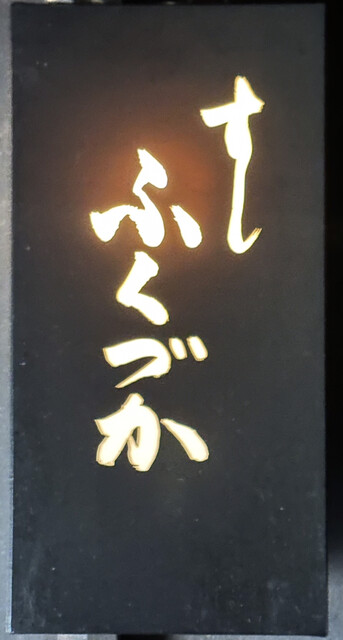 すし
ふくづか